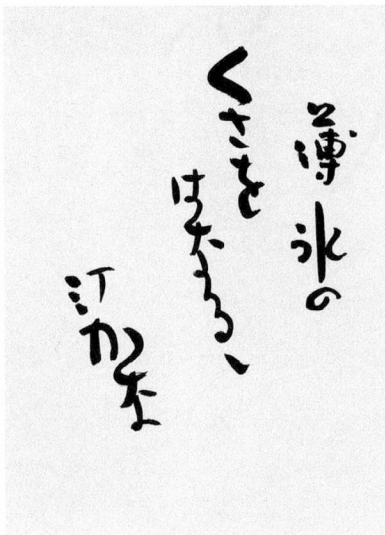 薄氷の
くさを
はなるゝ
汀かな